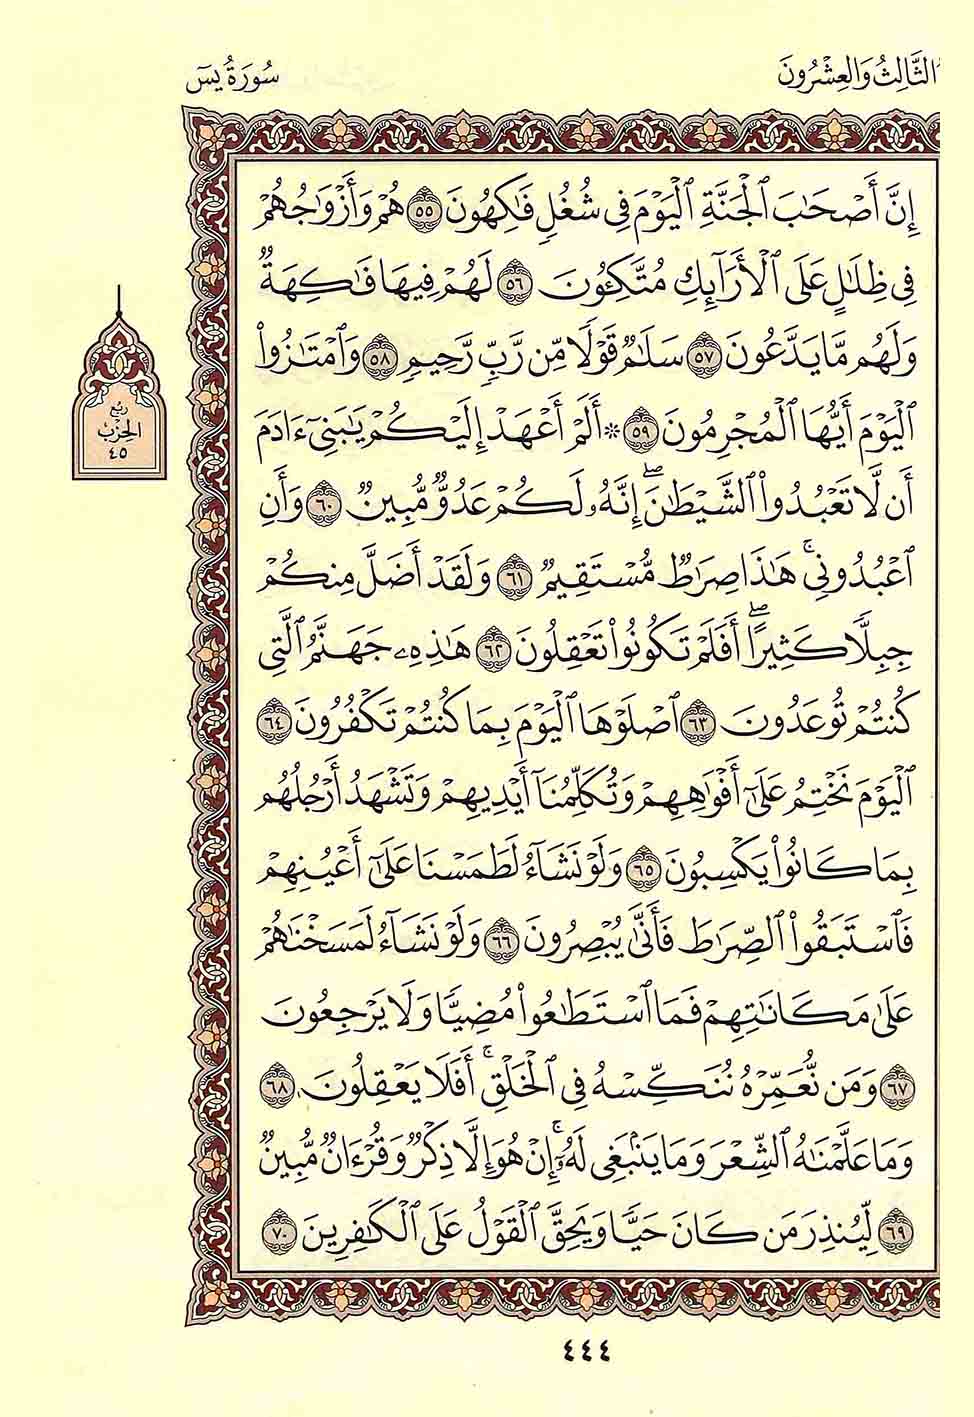 الثَّالِثُ وَالعِشْرُونَ
سُورَةُ يسٓ
إِنَّ أَصْحَٰبَ ٱلْجَنَّةِ ٱلْيَوْمَ فِى شُغُلٍ فَٰكِهُونَ ٥٥ هُمْ وَأَزْوَٰجُهُمْ
فِى ظِلَٰلٍ عَلَى ٱلْأَرَآئِكِ مُتَّكِـُٔونَ ٥٦ لَهُمْ فِيهَا فَٰكِهَةٌ
وَلَهُم مَّا يَدَّعُونَ ٥٧ سَلَٰمٌ قَوْلًا مِّن رَّبٍّ رَّحِيمٍ ٥٨ وَٱمْتَٰزُوا۟
ٱلْيَوْمَ أَيُّهَا ٱلْمُجْرِمُونَ ٥٩ ۞ أَلَمْ أَعْهَدْ إِلَيْكُمْ يَٰبَنِىٓ ءَادَمَ
أَن لَّا تَعْبُدُوا۟ ٱلشَّيْطَٰنَ ۖ إِنَّهُۥ لَكُمْ عَدُوٌّ مُّبِينٌ ٦٠ وَأَنِ
ٱعْبُدُونِى ۚ هَٰذَا صِرَٰطٌ مُّسْتَقِيمٌ ٦١ وَلَقَدْ أَضَلَّ مِنكُمْ
جِبِلًّا كَثِيرًا ۖ أَفَلَمْ تَكُونُوا۟ تَعْقِلُونَ ٦٢ هَٰذِهِۦ جَهَنَّمُ ٱلَّتِى
كُنتُمْ تُوعَدُونَ ٦٣ ٱصْلَوْهَا ٱلْيَوْمَ بِمَا كُنتُمْ تَكْفُرُونَ ٦٤
ٱلْيَوْمَ نَخْتِمُ عَلَىٰٓ أَفْوَٰهِهِمْ وَتُكَلِّمُنَآ أَيْدِيهِمْ وَتَشْهَدُ أَرْجُلُهُم
بِمَا كَانُوا۟ يَكْسِبُونَ ٦٥ وَلَوْ نَشَآءُ لَطَمَسْنَا عَلَىٰٓ أَعْيُنِهِمْ
فَٱسْتَبَقُوا۟ ٱلصِّرَٰطَ فَأَنَّىٰ يُبْصِرُونَ ٦٦ وَلَوْ نَشَآءُ لَمَسَخْنَٰهُمْ
عَلَىٰ مَكَانَتِهِمْ فَمَا ٱسْتَطَٰعُوا۟ مُضِيًّا وَلَا يَرْجِعُونَ
٦٧ وَمَن نُّعَمِّرْهُ نُنَكِّسْهُ فِى ٱلْخَلْقِ ۚ أَفَلَا يَعْقِلُونَ ٦٨
وَمَا عَلَّمْنَٰهُ ٱلشِّعْرَ وَمَا يَنۢبَغِى لَهُۥٓ ۚ إِنْ هُوَ إِلَّا ذِكْرٌ وَقُرْءَانٌ مُّبِينٌ
٦٩ لِّيُنذِرَ مَن كَانَ حَيًّا وَيَحِقَّ ٱلْقَوْلُ عَلَى ٱلْكَٰفِرِينَ ٧٠
رُبْع
الحِزْب
٤٥
٤٤٤